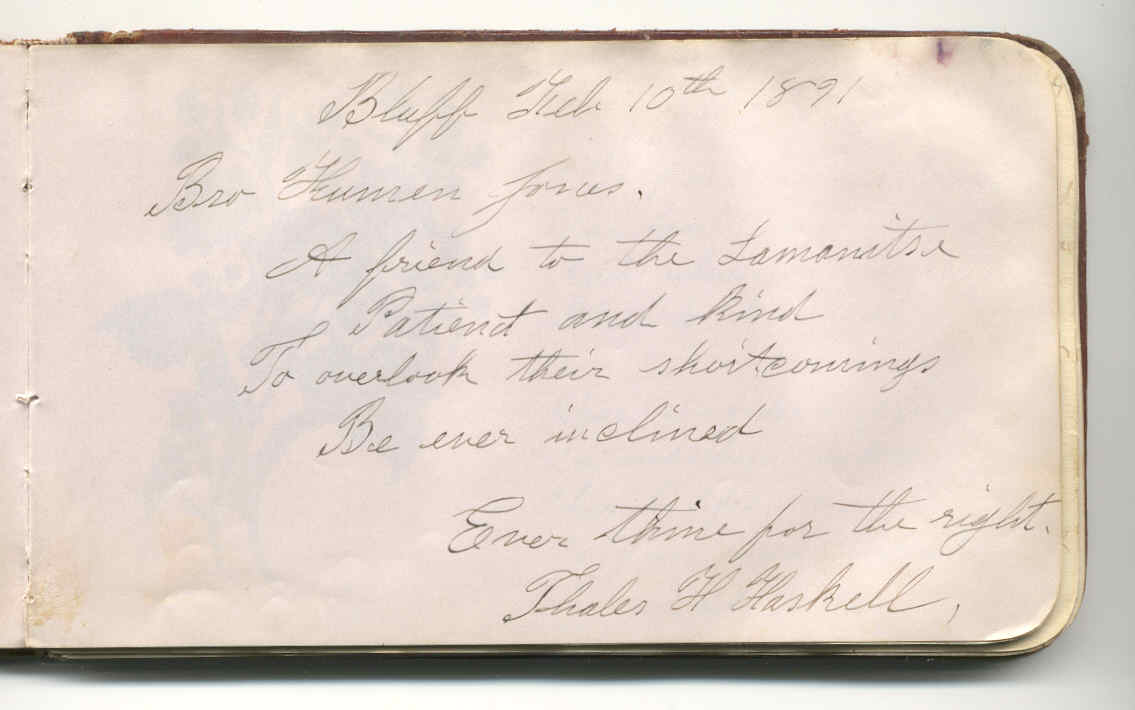 Bluff Feb 10th 1891
Bro Kumen Jones.
A friend to the Lamanitse
Patient and kind
To overlook their shortcomings
Be ever inclined
Ever thine for the right.
Thales H Haskell,